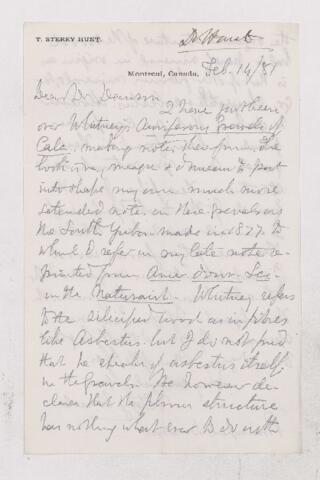 T. STERRY HUNT.
Dr Hunt
Montreal, Canada, Feb. 14/81
Dear Dr Dawson
I have just been
over Whitney's Auriferous Gravels of
Cala. making notes
book and mean to put
into shape my own much more
extended notes on these gravels on
the South Yuba made in 1877 to
which I refer in my late note re-
printed from Amer. Journ. Sci.
in the Naturalist. Whitney refers
to the silicified wood as in fibres
like Asbestus but I do not find
that he speaks of asbestus itself
in the gravels. He however de-
clares that the structure
has nothing whatever to do with